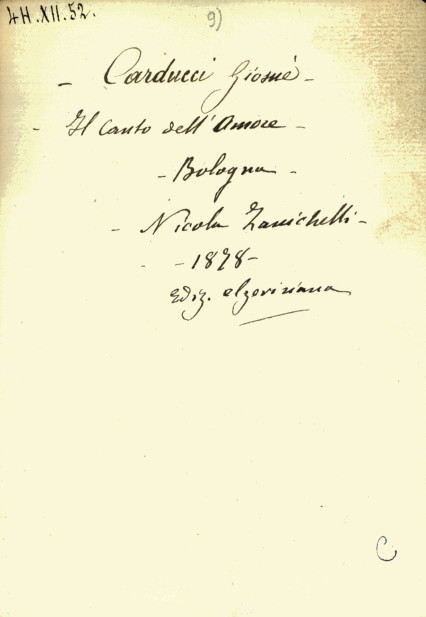 4H.XII.52.
9)
- Carducci Giosuè -
- Il Canto dell'Amore -
- Bologna -
- Nicola Zanichelli -
- 1878 -
Ediz. elzeviriana
C